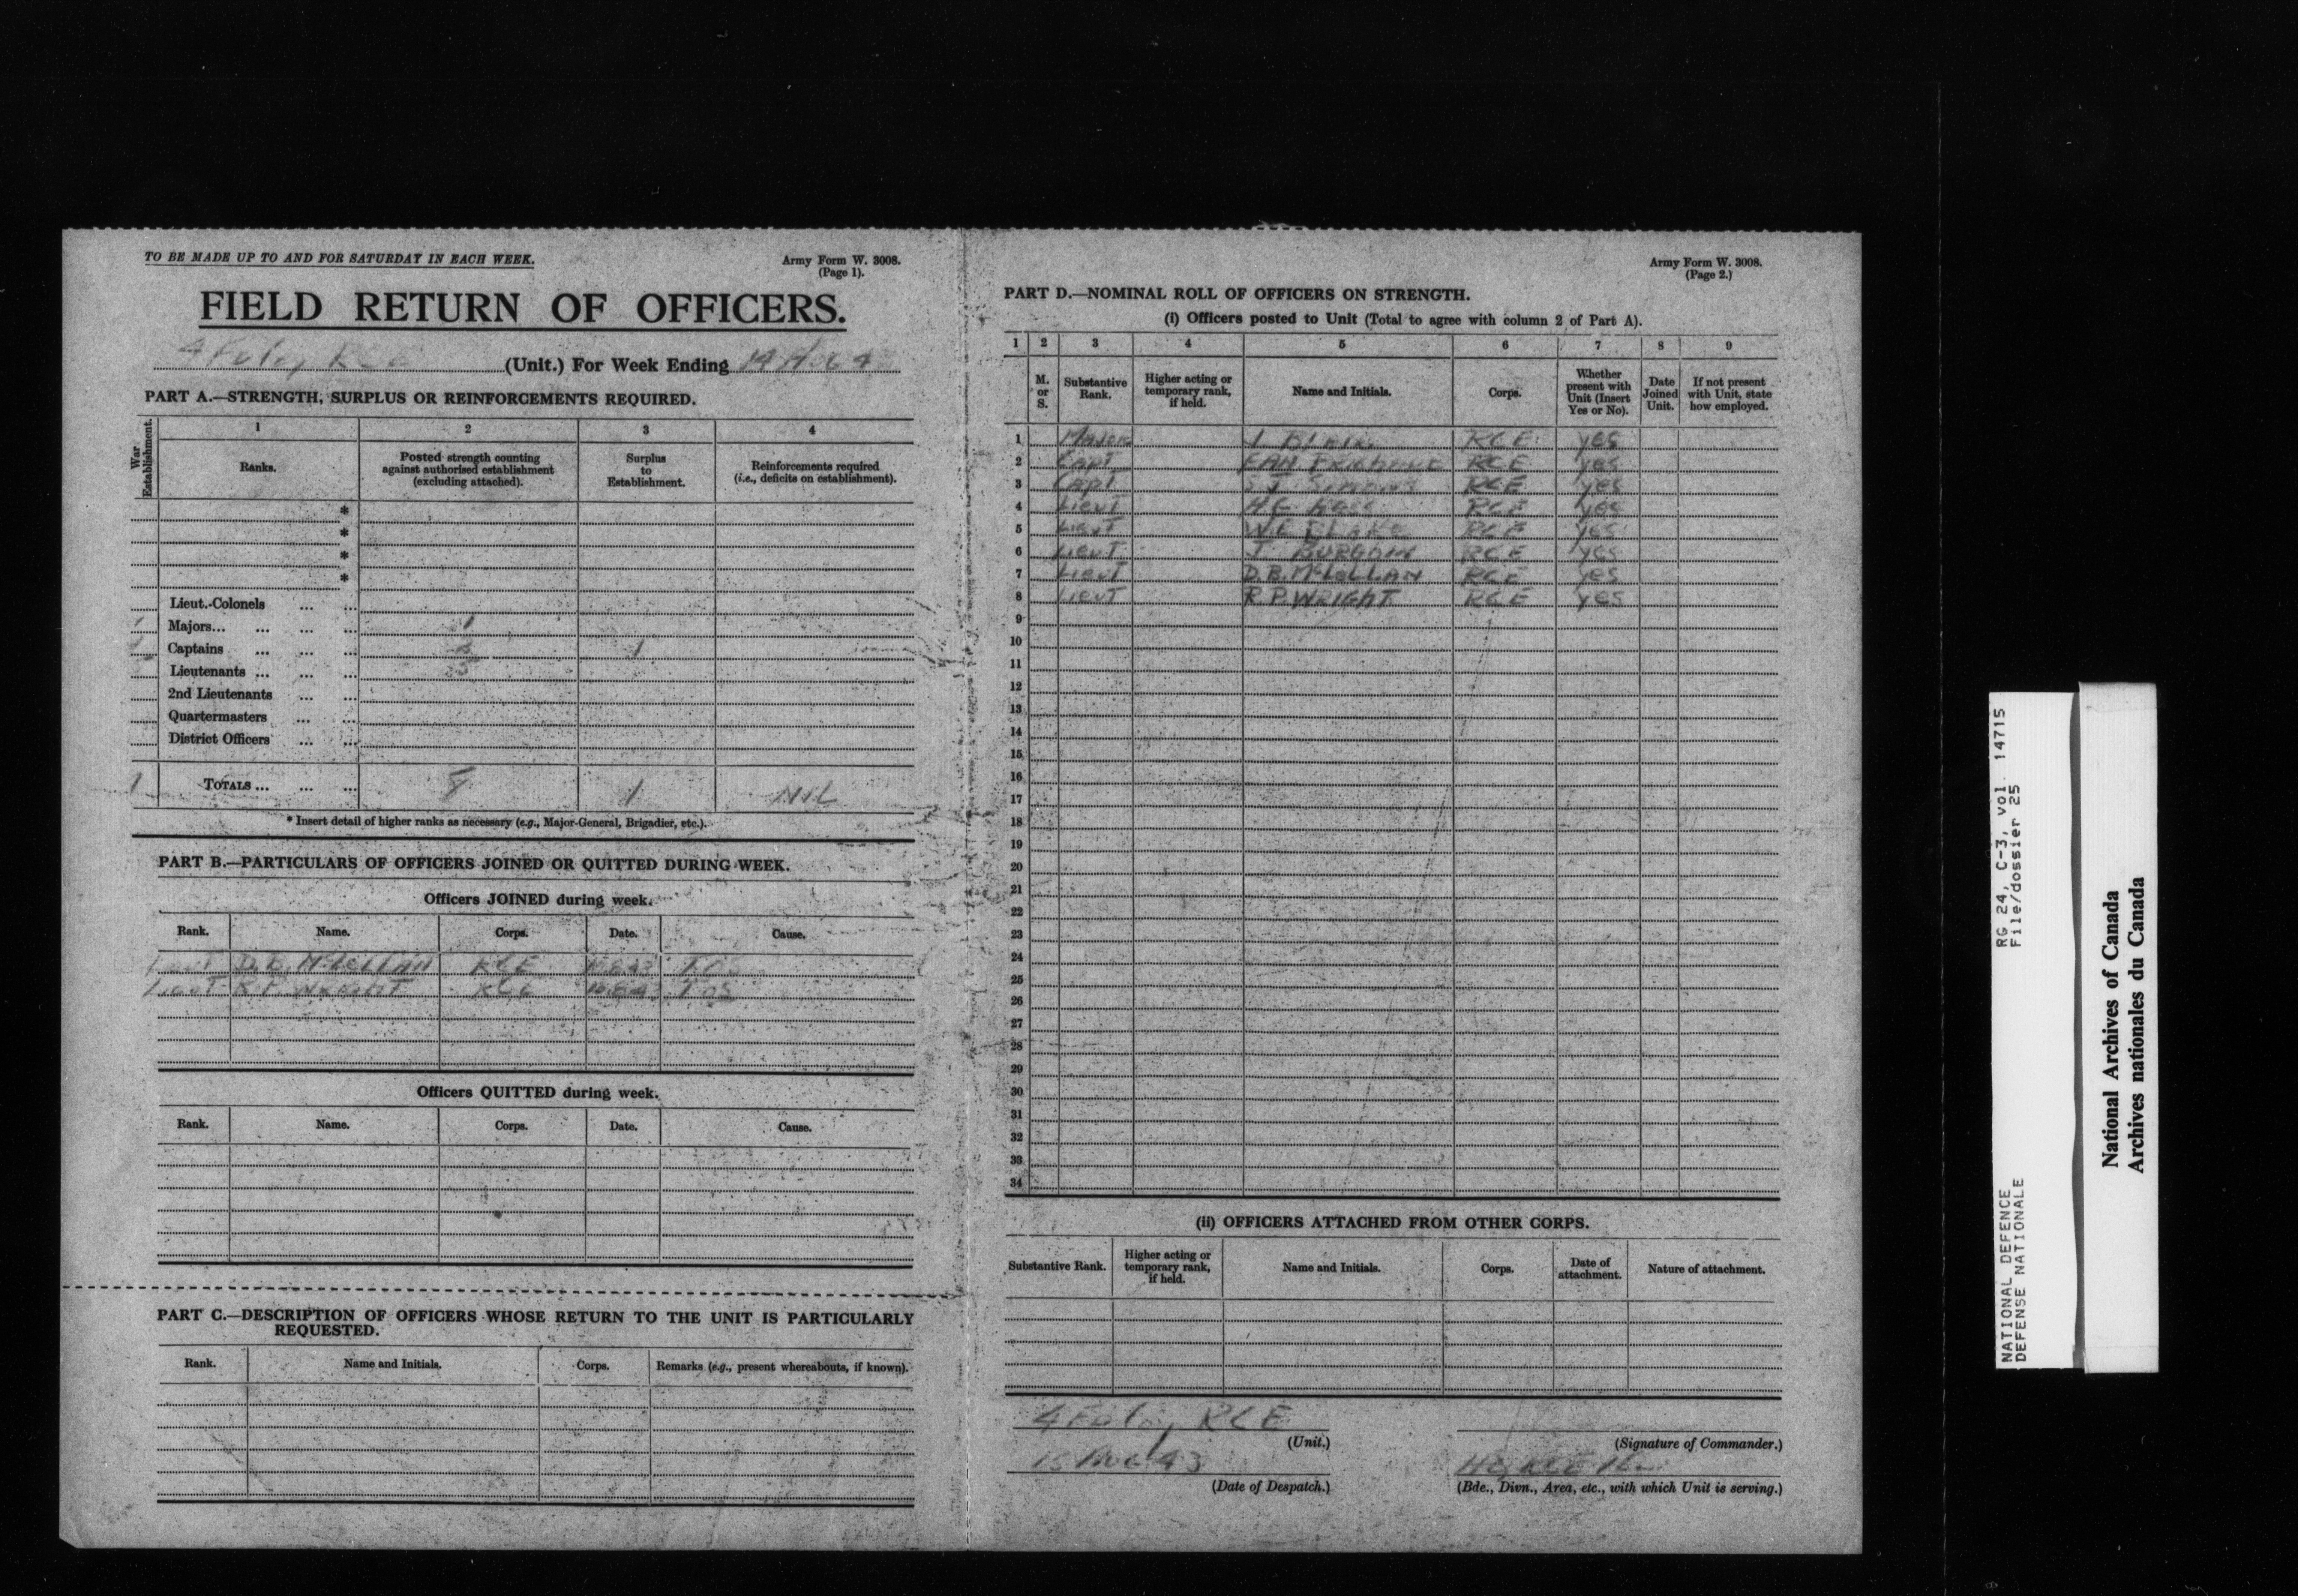 TO BE MADE UP TO AND FOR SATURDAY IN EACH WEEK.
Army Form W. 3008.
(Page 1).
FIELD RETURN OF OFFICERS.
(Unit.) For Week Ending 14
PART A.—STRENGTH, SURPLUS OR REINFORCEMENTS REQUIRED.
War Establishment.
1 2 3 4
Ranks. Posted strength counting against authorised establishment (excluding attached). Surplus to Establishment. Reinforcements required (i.e., deficits on establishment).
*
*
*
*
Lieut.-Colonels ... ...
1 Majors... ... ... ... 1
Captains ... ... ... 2 1
Lieutenants ... ... ... 5
2nd Lieutenants ... ...
Quartermasters ... ...
District Officers ... ...
TOTALS ... ... ... 8 1 NIL
* Insert detail of higher ranks as necessary (e.g., Major-General, Brigadier, etc.).
PART B.—PARTICULARS OF OFFICERS JOINED OR QUITTED DURING WEEK.
Officers JOINED during week.
Rank. Name. Corps. Date. Cause.
Lieut D.B. McLELLAN RCE
Lieut R.P. WRIGHT RCE TOS
Officers QUITTED during week.
Rank. Name. Corps. Date. Cause.
PART C.—DESCRIPTION OF OFFICERS WHOSE RETURN TO THE UNIT IS PARTICULARLY
REQUESTED.
Rank. Name and Initials. Corps. Remarks (e.g., present whereabouts, if known).
Army Form W. 3008.
(Page 2.)
PART D.—NOMINAL ROLL OF OFFICERS ON STRENGTH.
(i) Officers posted to Unit (Total to agree with column 2 of Part A).
1 2 3 4 5 6 7 8 9
M. or S. Substantive Rank. Higher acting or temporary rank, if held. Name and Initials. Corps. Whether present with Unit (Insert Yes or No). Date Joined Unit. If not present with Unit, state how employed.
1 Major RCE yes
2 Capt RCE yes
3 Capt RCE yes
4 Lieut RCE yes
5 Lieut W.E. BLAKE RCE yes
6 Lieut J. RCE yes
7 Lieut D.B. McLELLAN RCE yes
8 Lieut R.P. WRIGHT RCE yes
9
10
11
12
13
14
15
16
17
18
19
20
21
22
23
24
25
26
27
28
29
30
31
32
33
34
(ii) OFFICERS ATTACHED FROM OTHER CORPS.
Substantive Rank. Higher acting or temporary rank, if held. Name and Initials. Corps. Date of attachment. Nature of attachment.
4 RCE
(Unit.)
(Signature of Commander.)
15 Aug 43
HQ RCE
(Date of Despatch.)
(Bde., Divn., Area, etc., with which Unit is serving.)
RG 24, C-3, vol. 14715
File/dossier 25
NATIONAL DEFENCE
DEFENSE NATIONALE
National Archives of Canada
Archives nationales du Canada